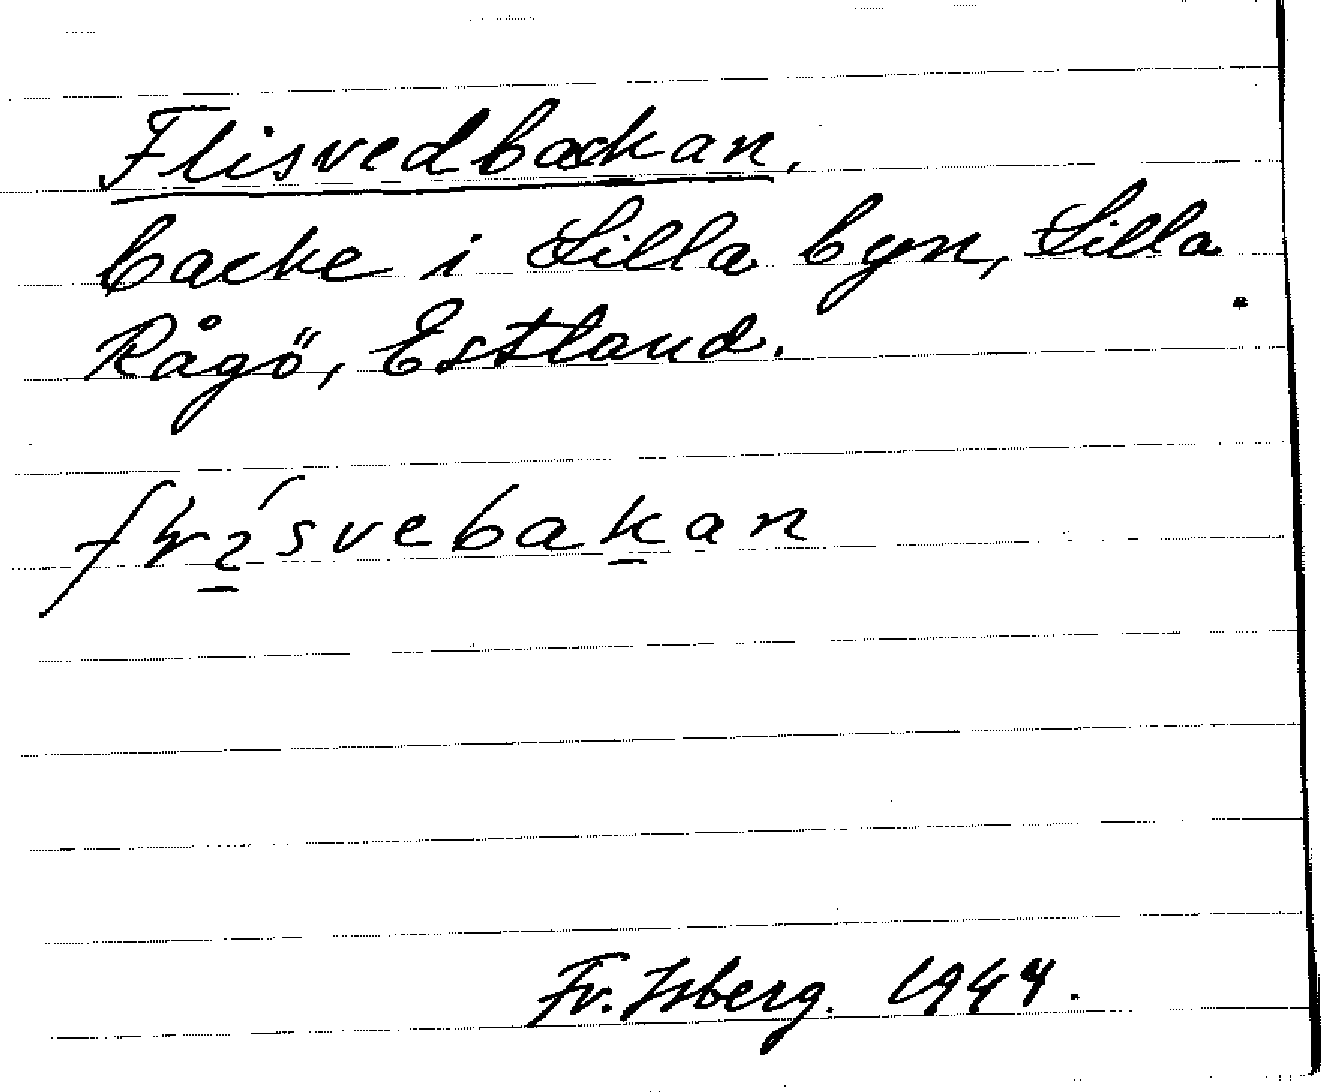 Flisvedbackan.
backe i Lilla byn, Lilla
Rågö, Estland.
Fr. Isberg. 1944.